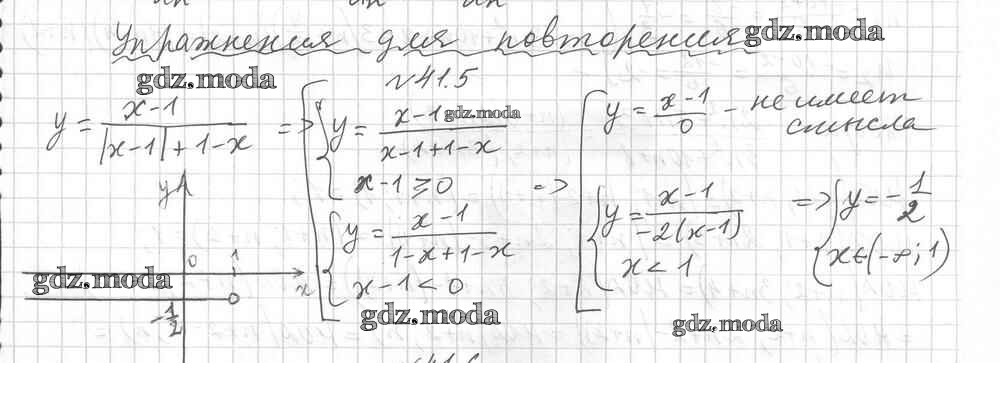 Упражнения для повторения gdz.moda
gdz.moda №41.5
y = (x-1)/(|x-1|+1-x) => [ { y = (x-1)/(x-1+1-x) gdz.moda
x-1 ≥ 0
{ y = (x-1)/(1-x+1-x)
x-1 < 0
=> [ y = (x-1)/0 - не имеет
смысла
{ y = (x-1)/(-2(x-1))
x < 1
=> { y = -1/2
x ∈ (-∞; 1)
y
0 1
x
-1/2
gdz.moda
gdz.moda
gdz.moda